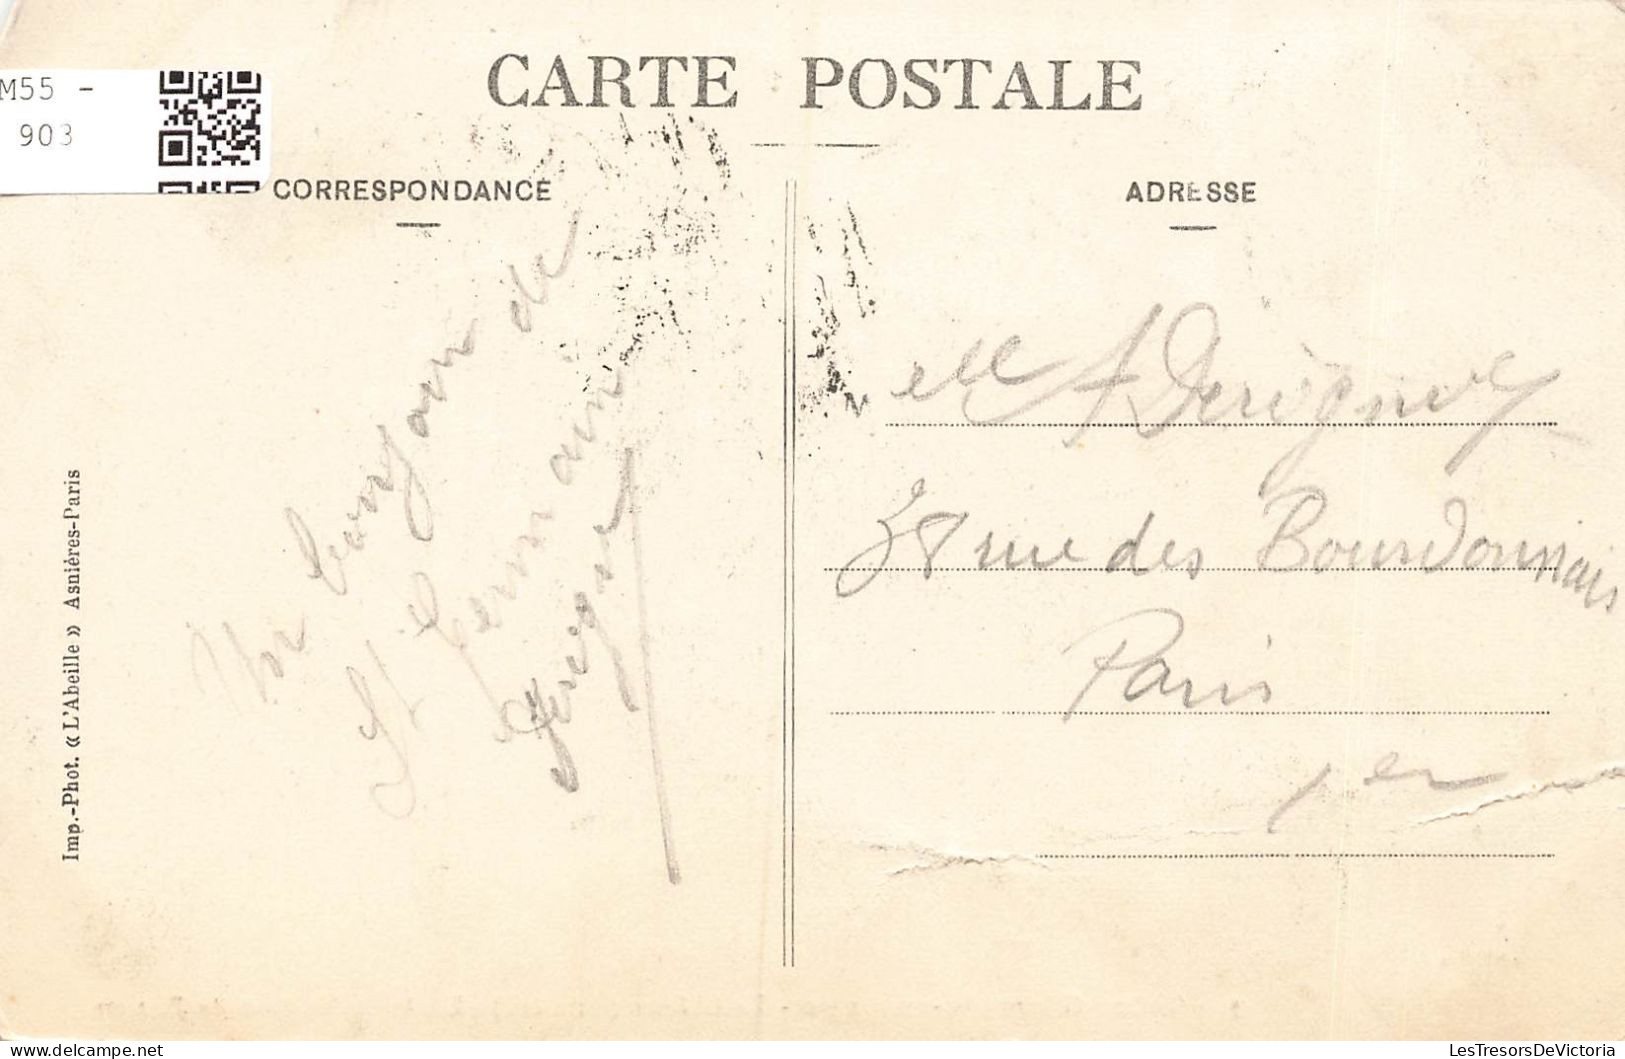 M55 -
903
CARTE POSTALE
CORRESPONDANCE
ADRESSE
Un bonjour de
St Germain
Imp.-Phot. « L'Abeille » Asnières-Paris
elle A
38 rue des Bourdonnais
Paris
1er
LesTresorsDeVictoria
www.delcampe.net